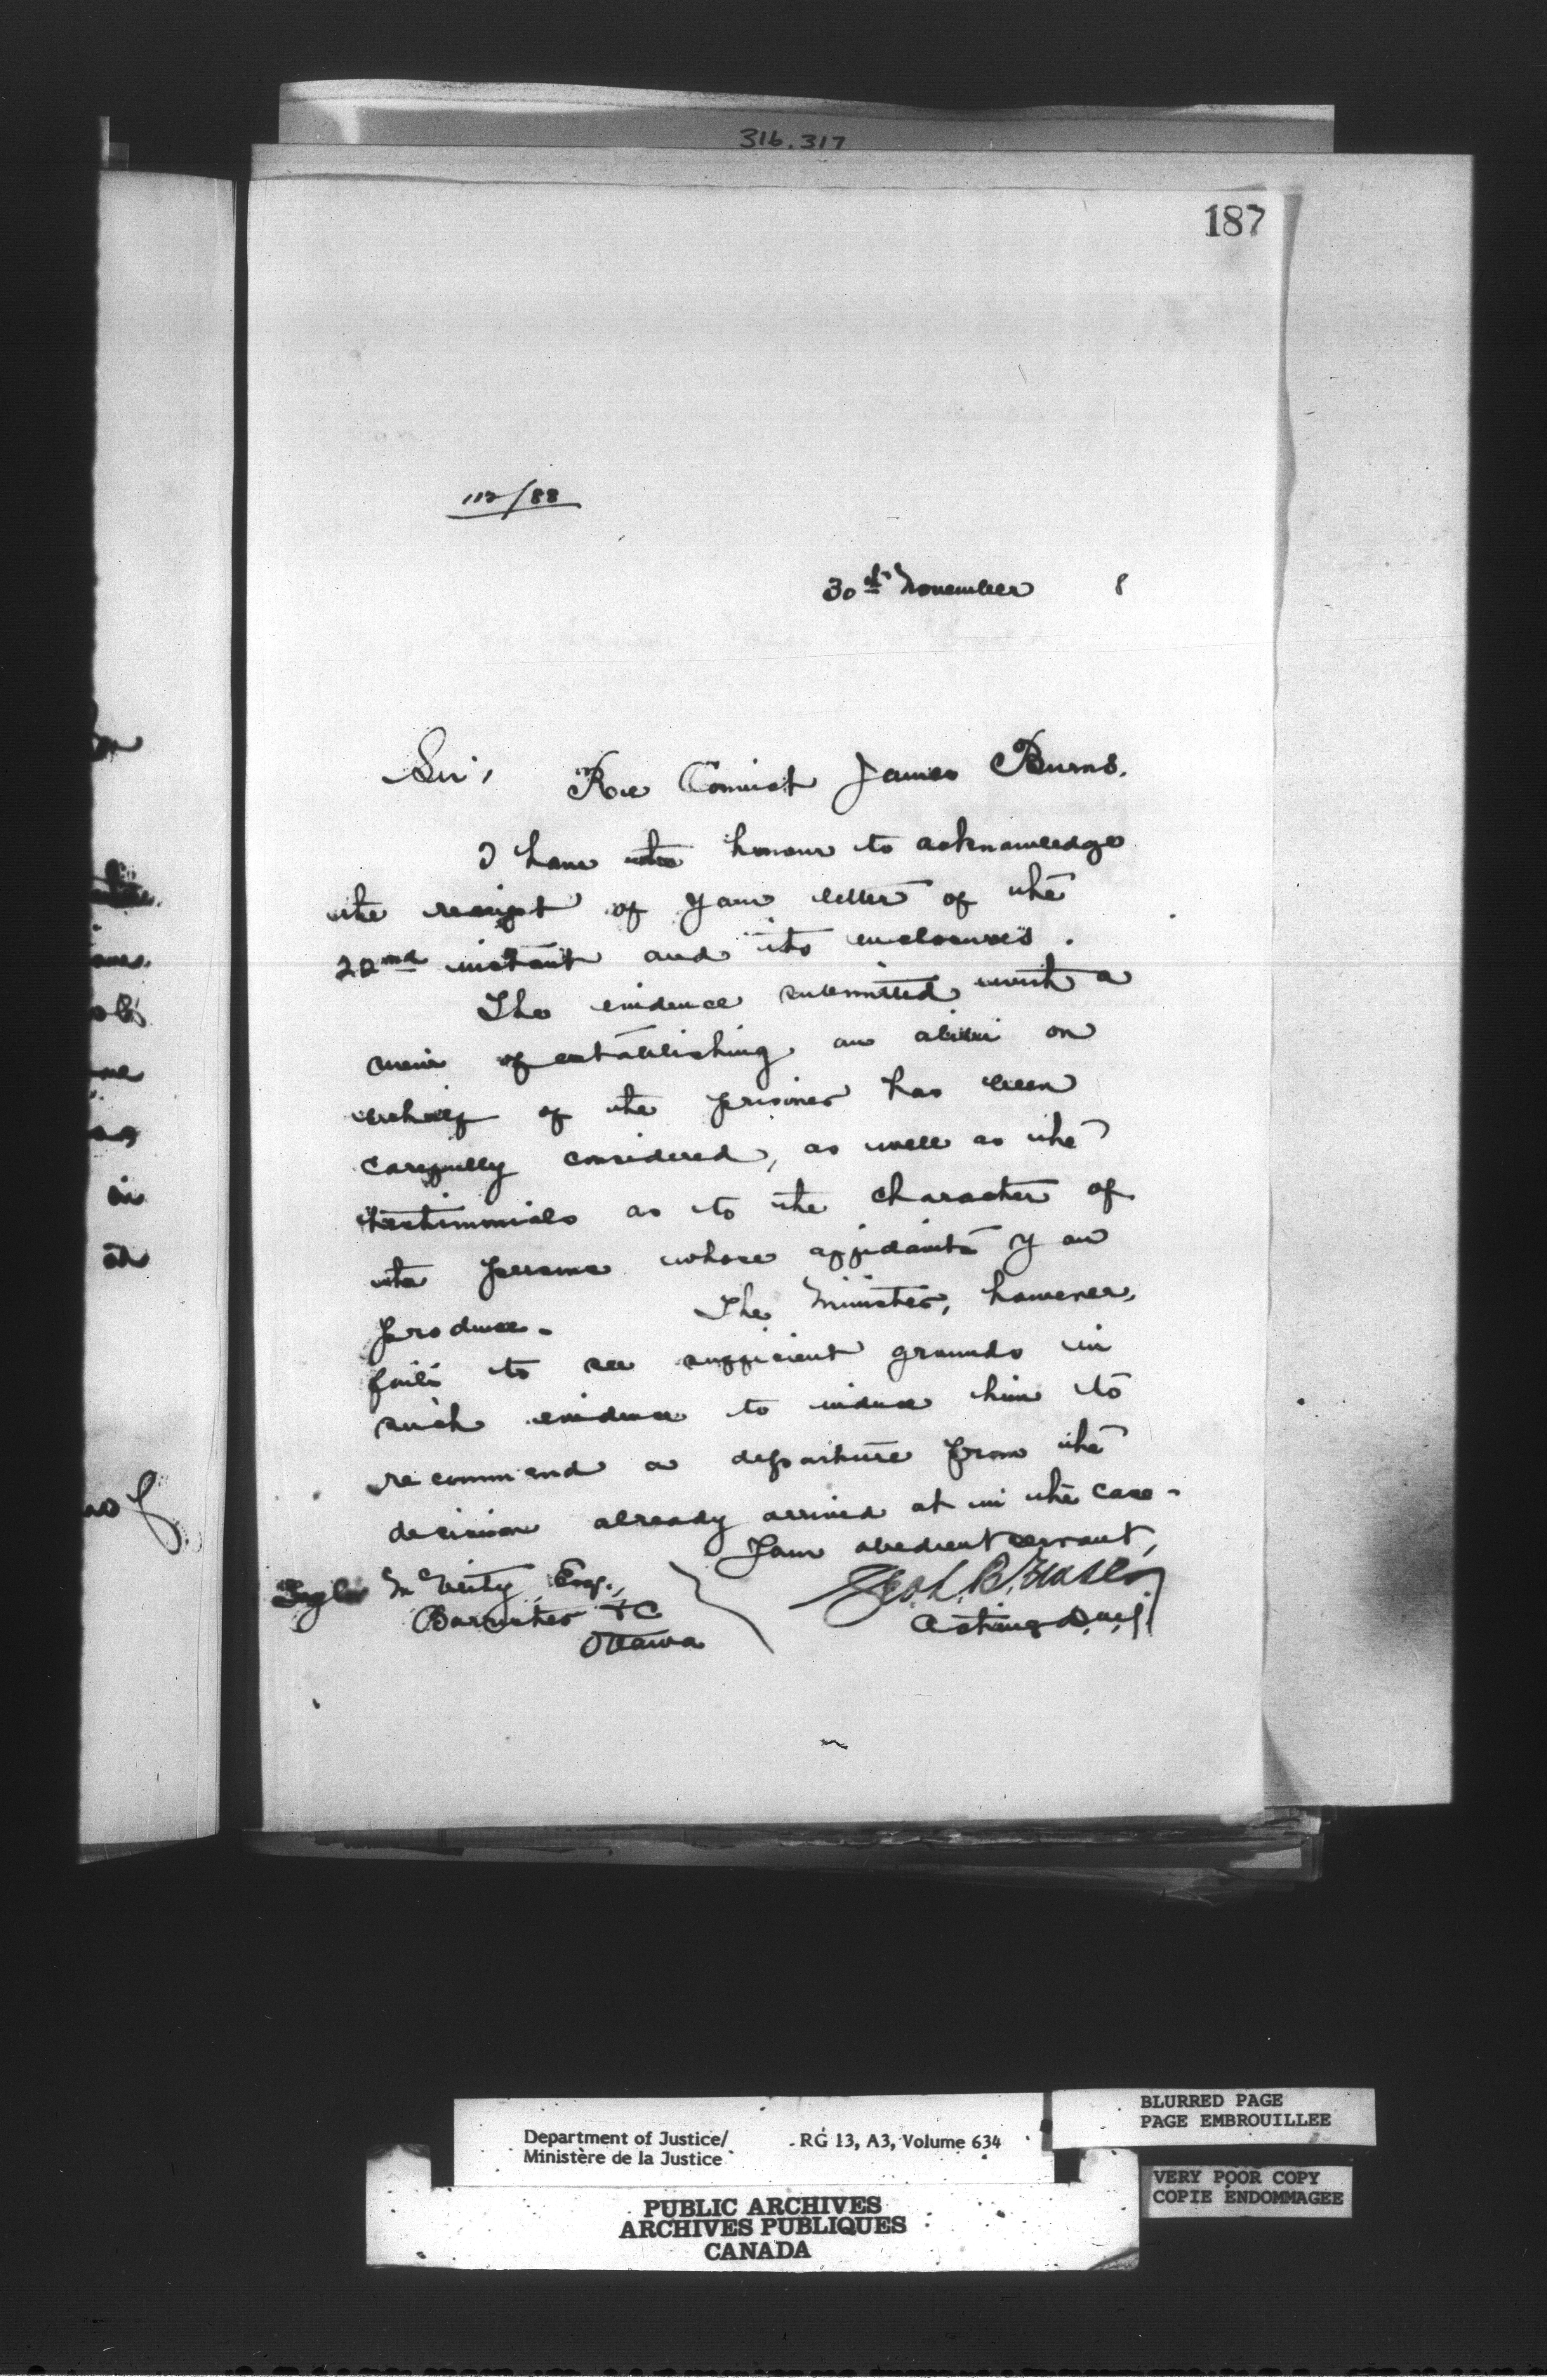 316.317
187
112/88
30th November 8
Sir, Re Convict James Burns.
I have the honour to acknowledge
the receipt of your letter of the
22nd instant and its enclosures.
The evidence submitted with a
view of establishing an alibi on
behalf of the prisoner has been
carefully considered, as well as the
testimonials as to the character of
the persons whose affidavits you
produce. The Minister, however,
fails to see sufficient grounds in
such evidence to induce him to
recommend a departure from the
decision already arrived at in the case.
Your obedient servant,
Taylor McVeity Esq.,
Barrister &C
Ottawa
Acting D.M.J.
Department of Justice/ RG 13, A3, Volume 634
Ministère de la Justice
PUBLIC ARCHIVES
ARCHIVES PUBLIQUES
CANADA
BLURRED PAGE
PAGE EMBROUILLEE
VERY POOR COPY
COPIE ENDOMMAGEE